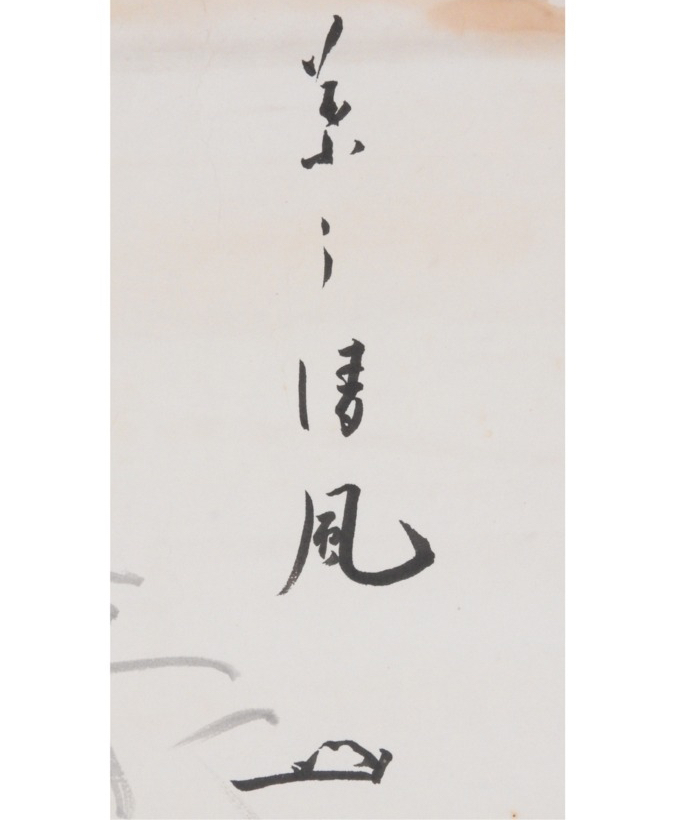 葉々清風